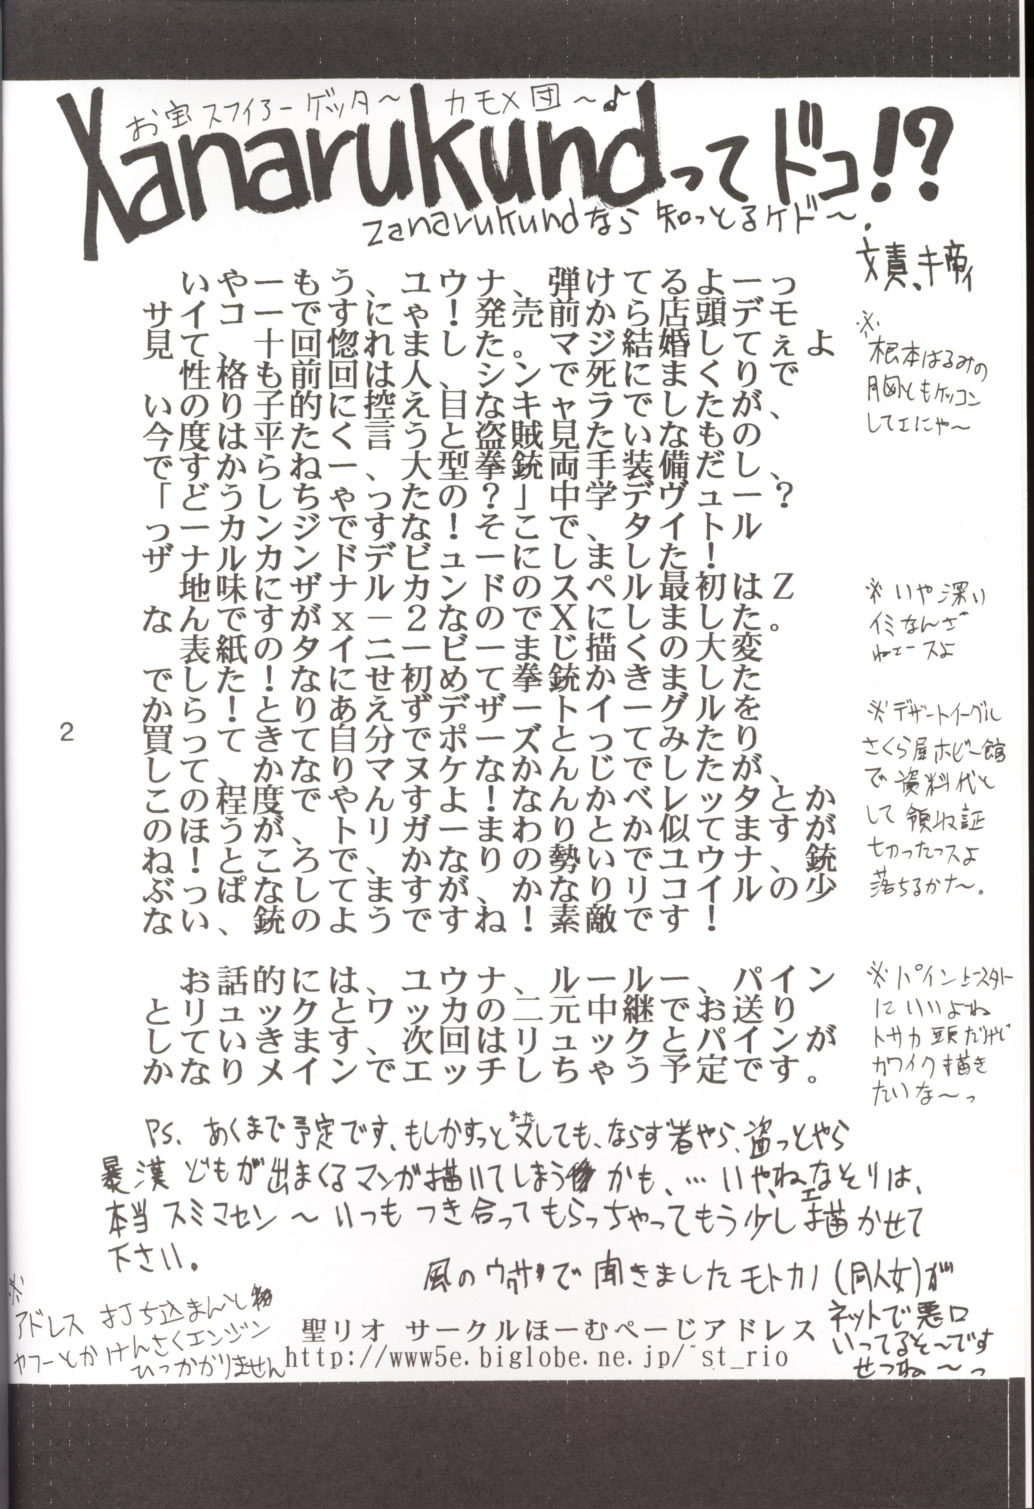 お宝スフィアーゲッタ～ カモメ団～♪
Xanarukundってドコ!?
Zanarukundなら知っとるケド～.
文責、キ帝ィ
いやーもう、ユウナ、弾けてるよーっ
サイコーですにゃ！発売前から店頭デモ
見て、十回惚れました。マジ結婚してぇよ
性格も前回は人、シンで死にまくりで
いのり子的に控え目なキャラでしたが、
今度は平たく言うと盗賊見たいなもの
ですからねー、大型拳銃両手装備だし、
「どうしちゃったの？」中学デヴュー？
っーカンジですな！そこで、タイトル
ザナルカンドデビューにしました！
ナルカンドのスペル最初はＺ
な地味にザナルカ2なのでXにしました。
表紙のタイニービーまじ描くの大変
でした！なにせ初めて拳銃かきました
からとりあえずデザートイーグルを
買って！きて自分でポーズとってみたり
してかなりマヌケな！かんじでしたが、
この程度でやんすよ！なんかベレッタと
のほうが、トリガーまわりとか似てますが
ね！ところで、かなりの勢いでユウナ、銃
ぶっぱなしてますがね、かなりリコイルの少
ない、銃のようです！素敵です！
お話的には、ユウナ、ルールー、パイン
とリュックとワッカの二元中継でお送り
していきます、次回はリュックとパインが
かなりメインでエッチしちゃう予定です。
※根本はるみの
胸ともケッコン
してェにゃ～
※いや深い
イミなんざ
ねェースよ
※デザートイーグル
さくら屋ホビー館
で資料代と
して領収証
切ったっスよ
落ちるかナ～。
※パイン上スタト
にいいよね
トサカ頭だけど
カワイク描き
たいな～っ
PS、あくまで予定です、もしかすっと又しても、ならず者やら、盗っとやら
暴漢どもが出まくるマンガ描いてしまうかも、…いやねェなそりは、
本当スミマセン～いつもつき合ってもらっちゃってもう少し描かせて
下さい。
風のウワサで聞きましたモトカノ(同人女)が
ネットで悪口
いってるそ～です
せつね～っ
※
アドレス打ち込まんと
ヤフーとかけんさくエンジン
ひっかかりません
聖リオ サークルほーむぺーじアドレス
http://www5e.biglobe.ne.jp/~st_rio
2